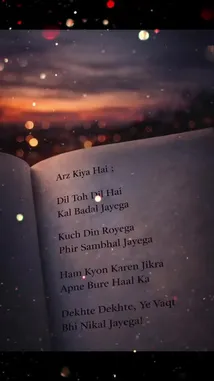 Arz Kiya Hai ;
Dil Toh Dil Hai
Kal Badal Jayega
Kuch Din Royega
Phir Sambhal Jayega
Ham Kyon Karen Jikra
Apne Bure Haal Ka
Dekhte Dekhte, Ye Vaqt
Bhi Nikal Jayega!